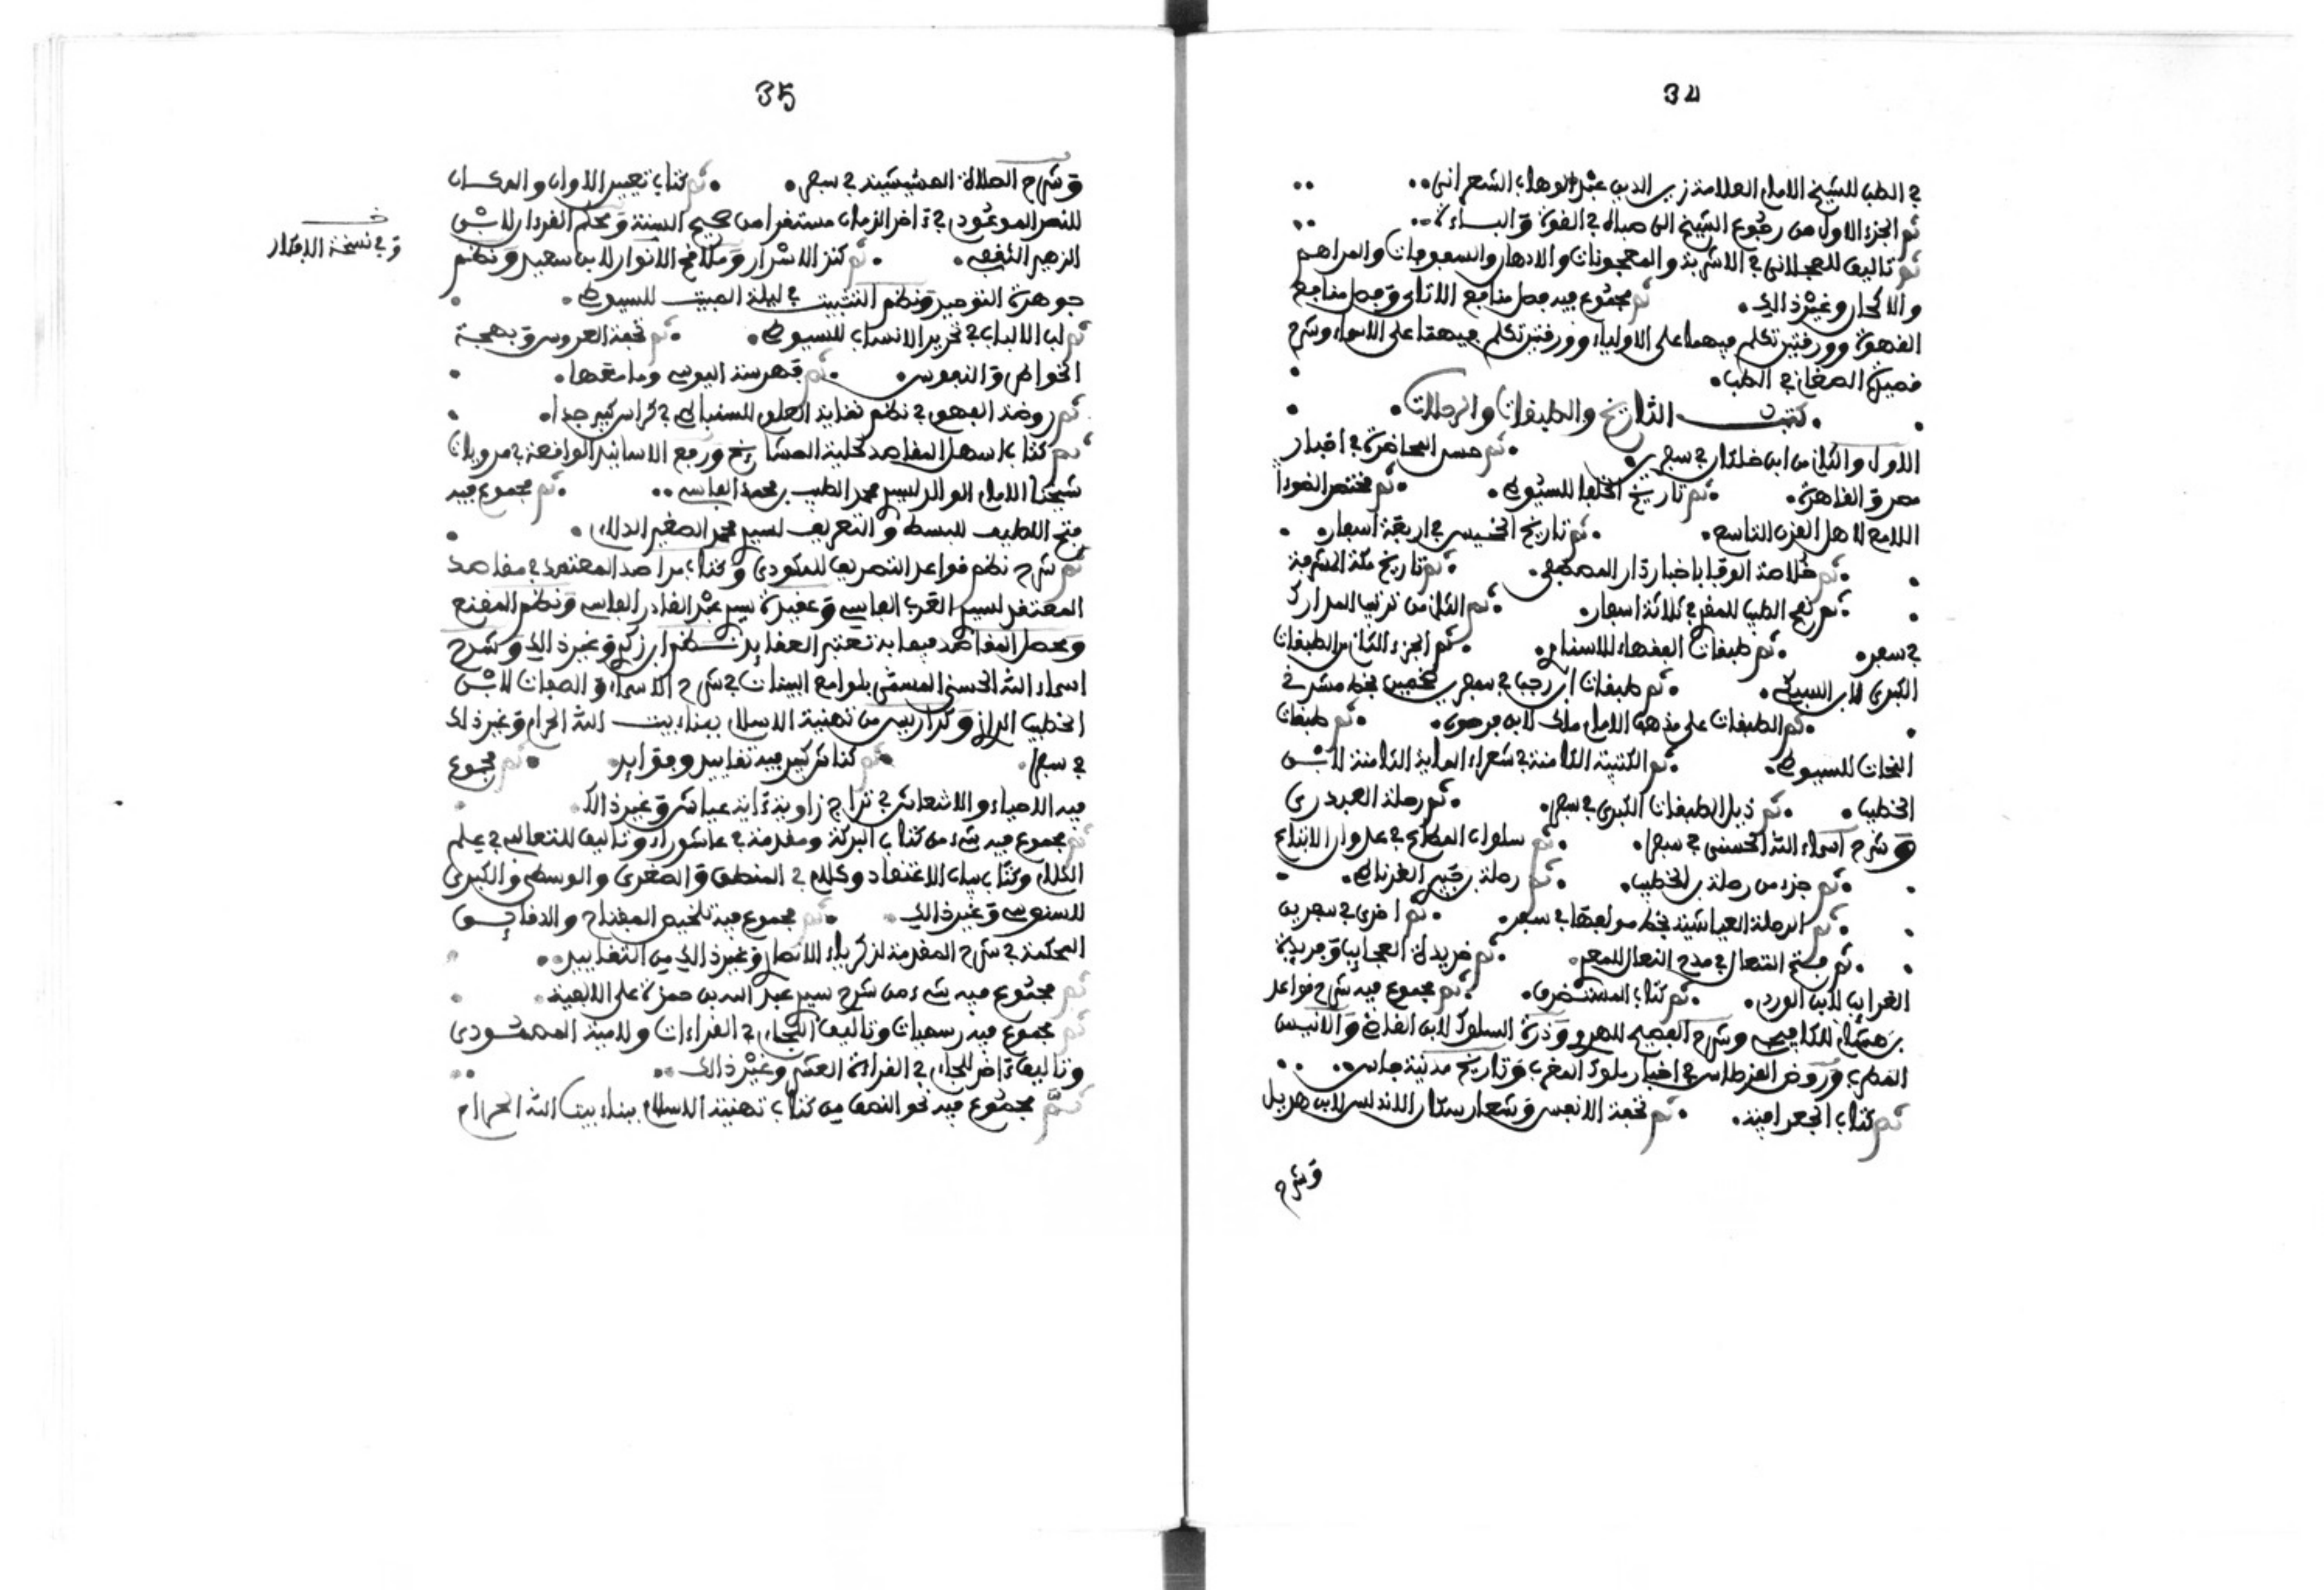 34
في الطب للشيخ الامام العلامة زين الدين عبد الوهاب الشعراني
ثم الجزء الاول من رجوع الشيخ الى صباه في القوة والباءة
ثم تاليف للعجلاني في الاشربة والمعجونات والادهان والسفوفات والمراهم
والاكحار وغير ذلك ثم مجموع فيه فصل منافع الاتاي وفصل منافع
القهوة وورقتين تكلم فيهما على الاولياء وورقتين تكلم فيهما على الاسماء وشرح
في الطب
كتب التاريخ والطبقات والرحلات
الاول والثاني من ابن خلكان في سفرين ثم حسن المحاضرة في اخبار
مصر والقاهرة ثم تاريخ الخلفا للسيوطي ثم مختصر الضوء
اللامع لاهل القرن التاسع ثم تاريخ الخميس في اربعة اسفار
ثم خلاصة الوفا باخبار دار المصطفى ثم تاريخ مكة المشرفة
ثم نفح الطيب للمقري في ثلاثة اسفار ثم الثاني من ترتيب المدارك
في سفر ثم طبقات الفقهاء للاسنوي ثم الجزء الثاني من الطبقات
الكبرى لابن السبكي ثم طبقات ابن رجب في سفرين بخط مشرفي
ثم الطبقات على مذهب الامام مالك لابن فرحون ثم طبقات
النحات للسيوطي ثم الكتيبة الكامنة في شعراء الماية الثامنة لابن
الخطيب ثم ذيل الطبقات الكبرى في سفر ثم رحلة العبدري
وشرح اسماء الله الحسنى في سفر ثم سلوان المطاع في عدوان الاتباع
ثم جزء من رحلة بن الخطيب ثم رحلة بن جبير الغرناطي
ثم الرحلة العياشية بخط مولفها في سفر ثم اخرى في سفرين
ثم فتح المتعال في مدح النعال للمقري ثم خريدة العجايب وفريدة
الغرايب لابن الوردي ثم كتاب المستظرف ثم مجموع فيه شرح قواعد
بن هشام للكافيجي وشرح الفصيح للهروي ودرة السلوك لابن القاضي والانيس
المطرب وروض القرطاس في اخبار ملوك المغرب وتاريخ مدينة فاس
ثم كتاب الجعرافية ثم تحفة الانفس وشعار سكان الاندلس لابن هذيل
وشرح
35
وشرح الصلاة المشيشية في سفر ثم كتاب تعيير الاوان والمكان
للنصر الموعود في ءاخر الزمان مستقرا من صحيح السنة ومحكم القرءان لابن
الزهير الثقفي ثم كنز الاسرار وملافح الانوار لابن سعيد ونظم
وفي نسخة الافكار
جوهرة التوحيد ونظم التثبيت في ليلة المبيت للسيوطي
ثم لب الالباب في تحرير الانساب للسيوطي ثم تحفة العروس وبهجة
الخواطر والنفوس ثم فهرسة اليوسي وما معها
ثم روضة الفهوم في نظم نقاية العلوم للسنباطي في كراس كبير جدا
ثم كتاب اسهل المقاصد لحلية المشايخ ورفع الاسانيد الواقعة في مرويات
شيخنا الامام الوالد لسيدي محمد الطيب بن محمد الفاسي ثم مجموع فيه
فتح اللطيف للبسط والتعريف لسيدي محمد الصغير الدلائي
ثم شرح نظم قواعد التصريف للمكودي وكتاب مراصد المعتمد في مقاصد
المعتقد لسيدي العربي الفاسي وعقيدة سيدي عبد القادر الفاسي ونظم المقنع
ومحصل المقاصد فيما به تعتبر العقايد نظم ابن زكري وغير ذلك وشرح
اسماء الله الحسنى المسمى بلوامع البينات في شرح الاسماء والصفات لابن
الخطيب الرازي وكراريس من تهنية الاسلام ببناء بيت الله الحرام وغير ذلك
في سفر ثم كناش كبير فيه تقاييد وفوايد ثم مجموع
فيه الاحياء والانتعاش في تراجم زاوية ءاية عياش وغير ذلك
ثم مجموع فيه شيء من كتاب البركة ومقدمة في عاشوراء وتاليف للثعالبي في علم
الكلام وكتاب بيان الاعتقاد وكلام في المنطق والصغرى والوسطى والكبرى
للسنوسي وغير ذلك ثم مجموع فيه تلخيص المفتاح والدقايق
المحكمة في شرح المقدمة لزكرياء الانصاري وغير ذلك من التقاييد
ثم مجموع فيه شيء من شرح سيدي عبد الله بن حمزة على الالفية
ثم مجموع فيه رسميات وتاليف النجاء في القراءات ولامية المصمودي
وتاليف ءاخر للنجاء في القراءة العشر وغير ذلك
ثم مجموع فيه نحو النصف من كتاب تهنية الاسلام ببناء بيت الله الحرام